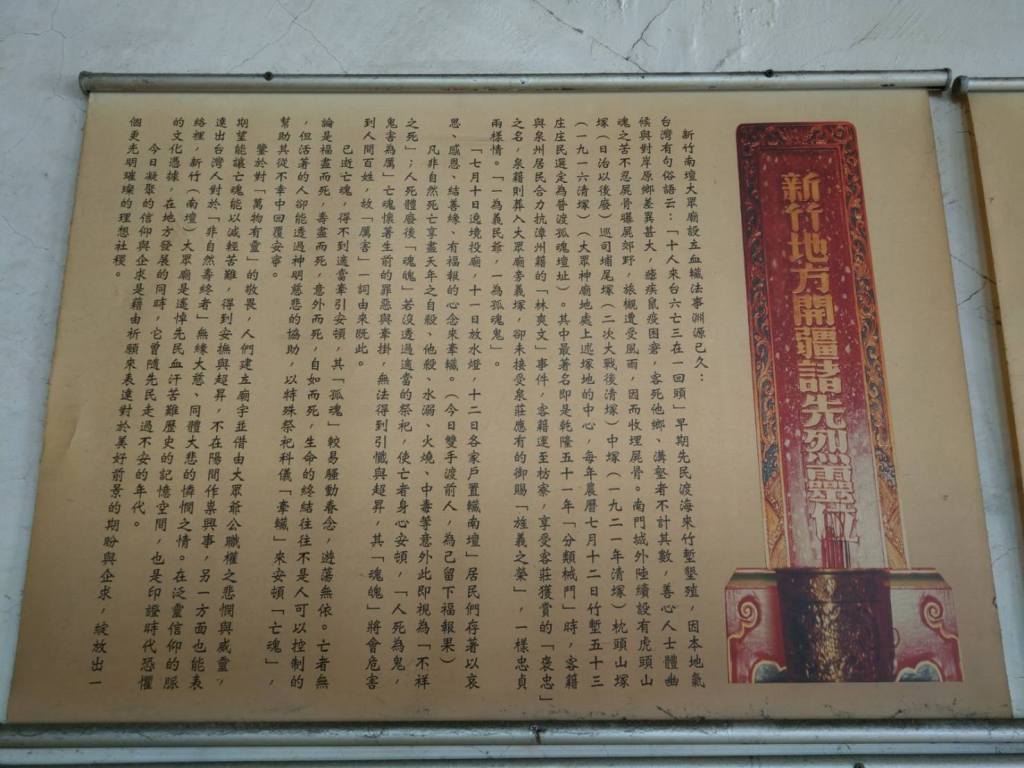 新竹地方開疆諸先烈靈位
新竹南壇大眾廟設立血轙法事淵源已久：
台灣有句俗語云：「十人來台六七三在一回頭」早期先民渡海來竹塹墾殖，因本地氣
候與對岸原鄉差異甚大，瘧疾鼠疫困窘，客死他鄉、溝壑者不計其數，善心人士體幽
魂之苦不忍屍骨曝屍郊野，旅櫬遭受風雨，因而收埋屍骨。南門城外陸續設有虎頭山
塚（日治以後廢）巡司埔尾塚（二次大戰後清塚）中塚（一九二一年清塚）枕頭山塚
（一九一六清塚）（大眾神廟地處上述塚地的中心，每年農曆七月十二日竹塹五十三
庄庄民選定為普渡孤魂壇址）。其中最著名即是乾隆五十一年「分類械鬥」時，客籍
與泉州居民合力抗漳州籍的「林爽文」事件，客籍運至枋寮，享受客莊獲賞的「褒忠」
之名，泉籍則葬入大眾廟旁義塚，卻未接受泉莊應有的御賜「旌義之榮」，一樣忠貞
兩樣情。「一為義民爺，一為孤魂鬼」。
「七月十日逡境投廟，十一日放水燈，十二日各家戶置轙南壇」居民們存著以哀
思、感恩、結善緣、有福報的心念來牽轙。（今日雙手渡前人，為己留下福報果）
凡非自然死亡享盡天年之自殺、他殺、水溺、火燒、中毒等意外此即視為「不祥
之死」；人死體廢後「魂魄」若沒透過適當的祭祀，使亡者身心安頓，「人死為鬼，
鬼害為厲」亡魂懷著生前的罪惡與牽掛，無法得到引懺與超昇，其「魂魄」將會危害
到人間百姓，故「厲害」一詞由來既此。
已逝亡魂，得不到適當牽引安頓，其「孤魂」較易騷動眷念，遊蕩無依。亡者無
論是福盡而死，壽盡而死，意外而死，自如而死，生命的終結往往不是人可以控制的
，但活著的人卻能透過神明慈悲的協助，以特殊祭祀科儀「牽轙」來安頓「亡魂」，
幫助其從不幸中回覆安寧。
鑒於對「萬物有靈」的敬畏，人們建立廟宇並借由大眾爺公職權之悲憫與威靈，
期望能讓亡魂能以減輕苦難，得到安撫與超昇，不在陽間作祟興事，另一方面也能表
達出台灣人對於「非自然壽終者」無緣大慈、同體大悲的憐憫之情。在泛靈信仰的脈
絡裡，新竹（南壇）大眾廟是遙悼先民血汗苦難歷史的記憶空間，也是印證時代恐懼
的文化憑據，在地方發展的同時，它曾隨先民走過不安的年代。
今日凝聚的信仰與企求是藉由祈願來表達對於美好前景的期盼與企求，綻放出一
個更光明璀璨的理想社稷。